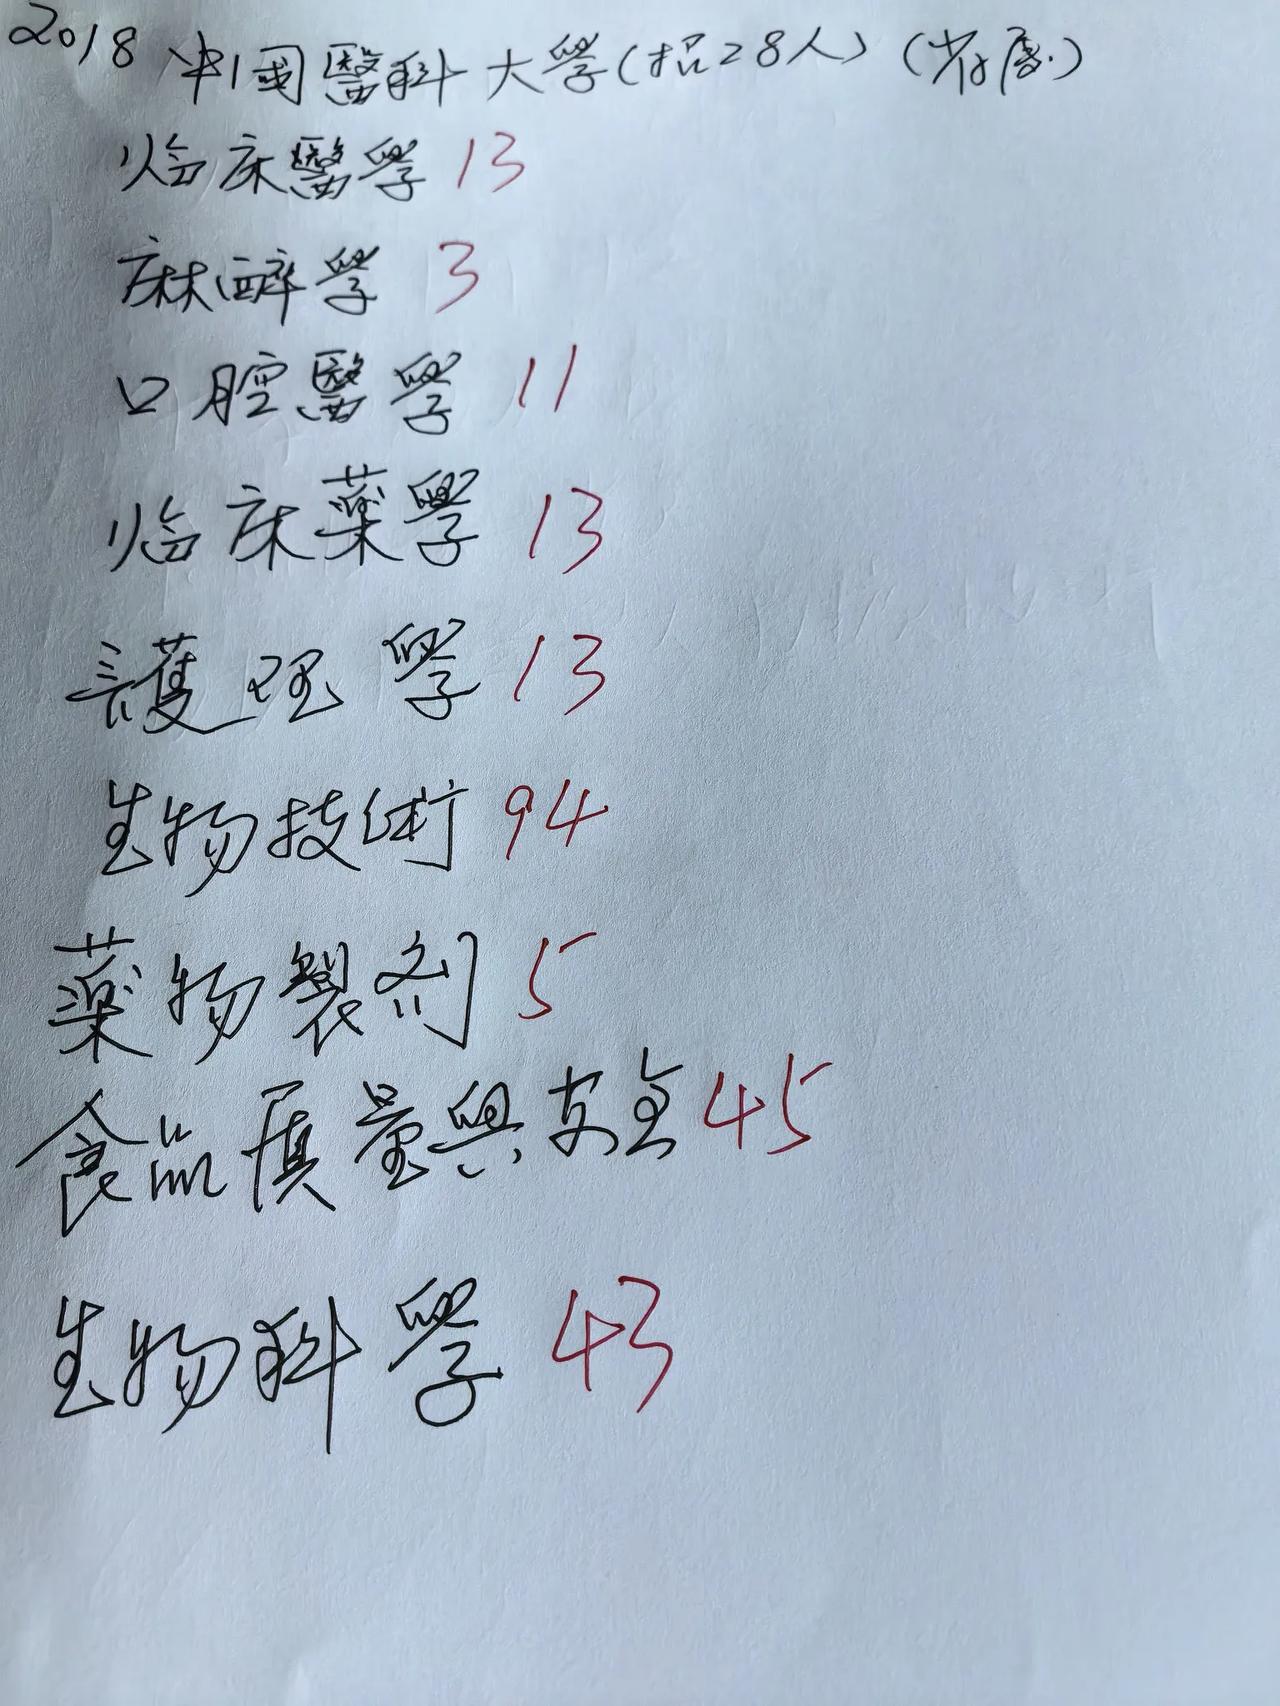 2018 中國醫科大學(招28人)
临床醫學 13
麻醉學 3
口腔醫學 11
临床藥學 13
護理學 13
生物技術 94
藥物製剂 5
食品质量與安全 45
生物科學 43